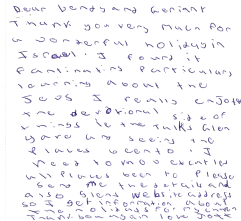 Dear Wendy and Geriant
Thank you very much for
a wonderful holiday in
Israel. I found it
fantinating particulary
learning about the
Jews I really enjoye
the devotional side of
things ie the talks Glen
gave us seeing the
places we went to. I
need to
all places been to Please
send me the details and
also Glens website address
so I get information about
love